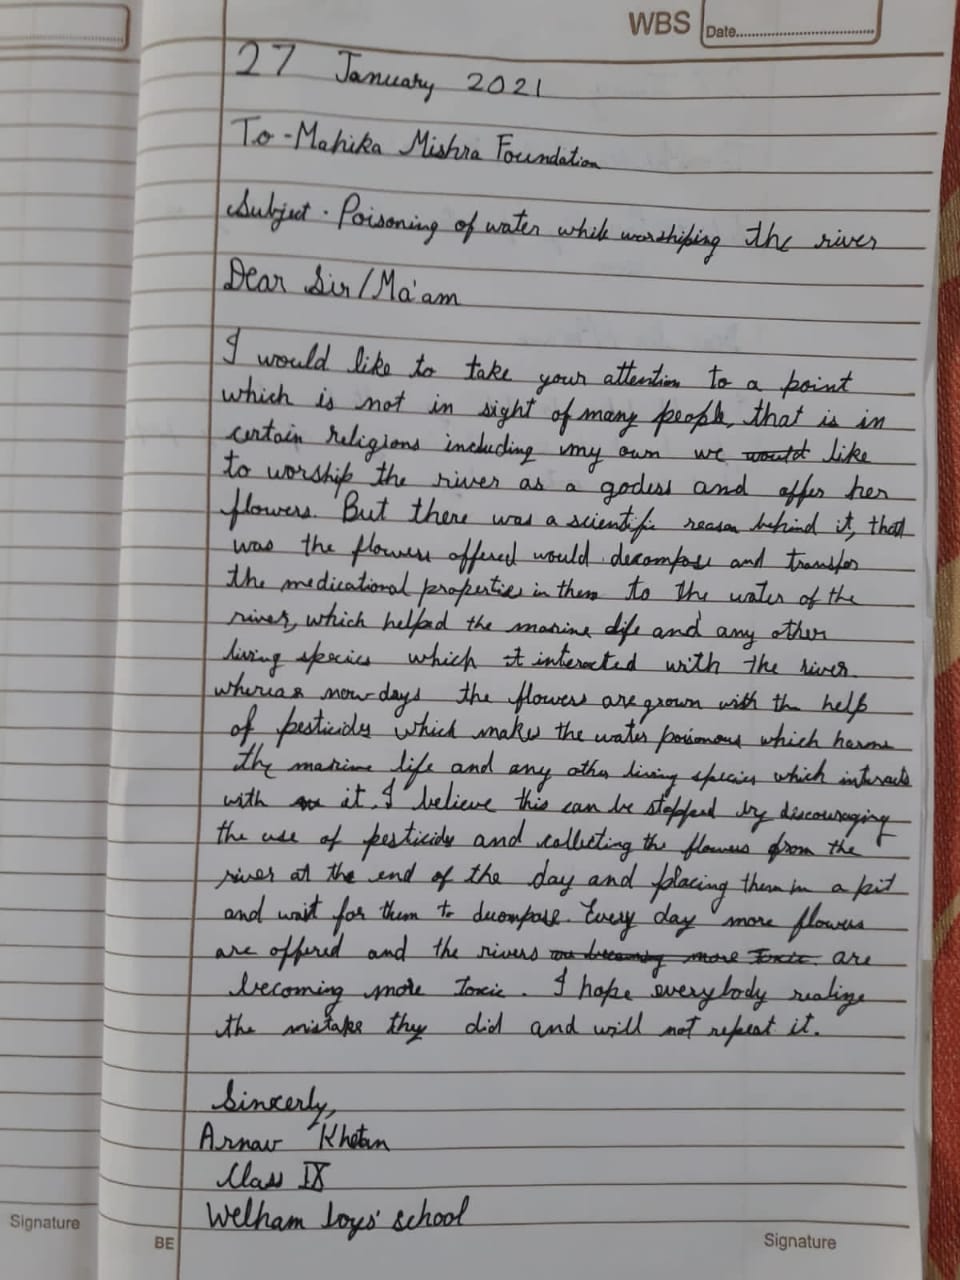 WBS
Date
27 January 2021
To - Mahika Mishra Foundation
Subject. Poisoning of water while worshiping the river
Dear Sir/Ma'am
I would like to take your attention to a point
which is not in sight of many people, that is in
certain religions including my own we would like
to worship the river as a godess and offer her
flowers. But there was a scientific reason behind it, that
was the flowers offered would decompose and transfer
the medicational properties in them to the water of the
river, which helped the marine life and any other
living species which it interacted with the river
whereas now-days the flowers are grown with the help
of pesticides which makes the water poisonous which harms
the marine life and any other living species which interacts
with it. I believe this can be stopped by discouraging
the use of pesticides and collecting the flowers from the
river at the end of the day and placing them in a pit
and wait for them to decompose. Every day more flowers
are offered and the rivers are becoming more toxic. are
becoming more toxic. I hope everybody realize
the mistake they did and will not repeat it.
Sincerly,
Arnav Khetan
Class IX
Welham boys' school
Signature
BE
Signature